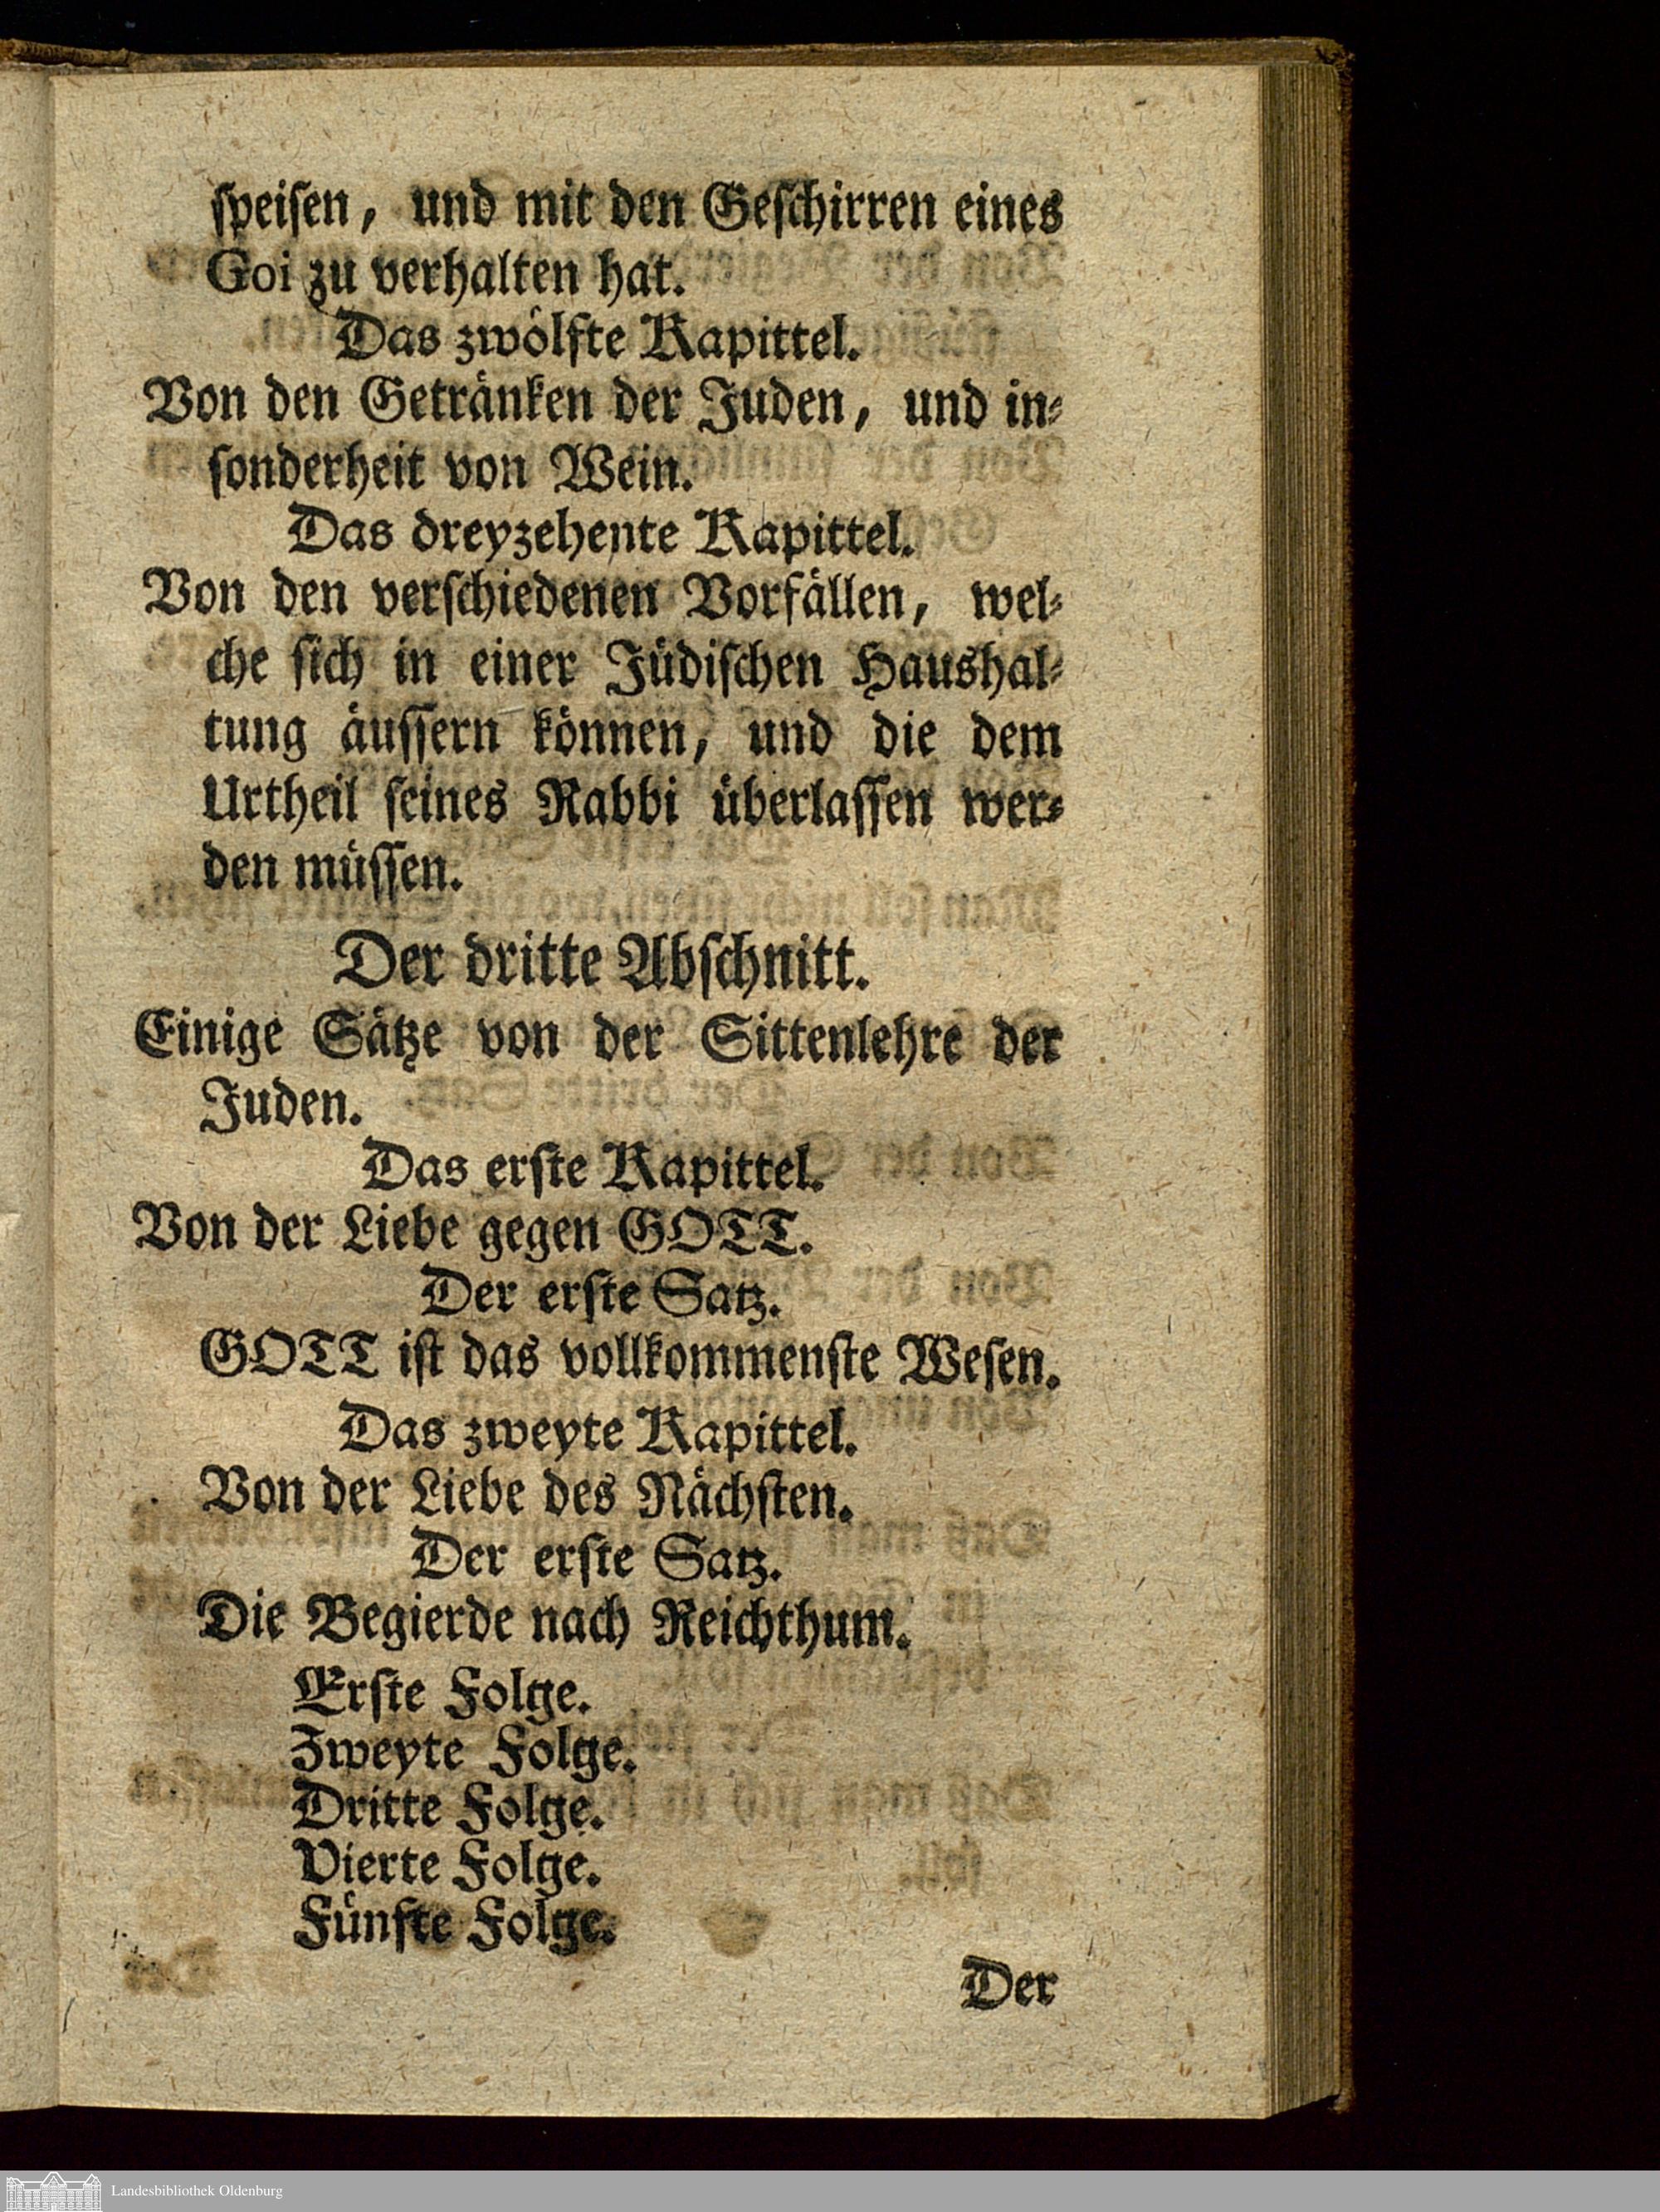 speisen, und mit den Geschirren eines
Goi zu verhalten hat.
Das zwölfte Kapittel.
Von den Getränken der Juden, und in-
sonderheit von Wein.
Das dreyzehente Kapittel.
Von den verschiedenen Vorfällen, wel-
che sich in einer Jüdischen Haushal-
tung äussern können, und die dem
Urtheil seines Rabbi überlassen wer-
den müssen.
Der dritte Abschnitt.
Einige Sätze von der Sittenlehre der
Juden.
Das erste Kapittel.
Von der Liebe gegen GOTT.
Der erste Satz.
GOTT ist das vollkommenste Wesen.
Das zweyte Kapittel.
Von der Liebe des Nächsten.
Der erste Satz.
Die Begierde nach Reichthum.
Erste Folge.
Zweyte Folge.
Dritte Folge.
Vierte Folge.
Fünfte Folge.
Der
Landesbibliothek Oldenburg